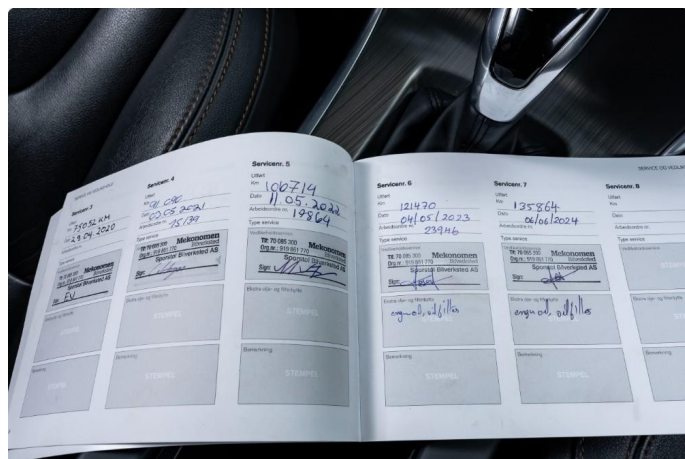 SERVICE OG VEDLIKEHOLD
Servicenr. 3
Utført
Km 75052 KM
Dato 29.04.2020
Type service
Tlf: 70 085 300 Mekonomen
Org.nr.: 919 861 770 Bilverksted
Sponstøl Bilverksted AS
Sign: EV
STEMPEL
Bemerkning
STEMPEL
Servicenr. 4
Utført
Km
Dato
Arbeidsordre nr. 15139
Type service
Tlf: 70 085 300 Mekonomen
Org.nr.: 919 861 770 Bilverksted
Sponstøl Bilverksted AS
Sign:
Ekstra olje- og filterbytte
STEMPEL
Bemerkning
STEMPEL
Servicenr. 5
Utført
Km 106714
Dato 11.05.2022
Arbeidsordre nr. 19864
Type service
Vedlikeholdsservice
Tlf: 70 085 300 Mekonomen
Org.nr.: 919 861 770 Bilverksted
Sponstøl Bilverksted AS
Sign:
Ekstra olje- og filterbytte
STEMPEL
Bemerkning
STEMPEL
SERVICE OG VEDLIKEHOLD
Servicenr. 6
Utført
Km 121470
Dato 04/05/2023
Arbeidsordre nr. 23946
Type service
Vedlikeholdsservice
Tlf: 70 085 300 Mekonomen
Org.nr.: 919 861 770 Bilverksted
Sponstøl Bilverksted AS
Sign:
Ekstra olje- og filterbytte
Bemerkning
STEMPEL
Servicenr. 7
Utført
Km 135864
Dato 06/06/2024
Arbeidsordre nr.
Type service
Vedlikeholdsservice
Tlf: 70 085 300 Mekonomen
Org.nr.: 919 861 770 Bilverksted
Sponstøl Bilverksted AS
Sign:
Ekstra olje- og filterbytte
Bemerkning
STEMPEL
Servicenr. 8
Utført
Km
Dato
Arbeidsordre nr.
Type service
Vedlikeholdsservice
Ekstra olje- og filterbytte
Bemerkning